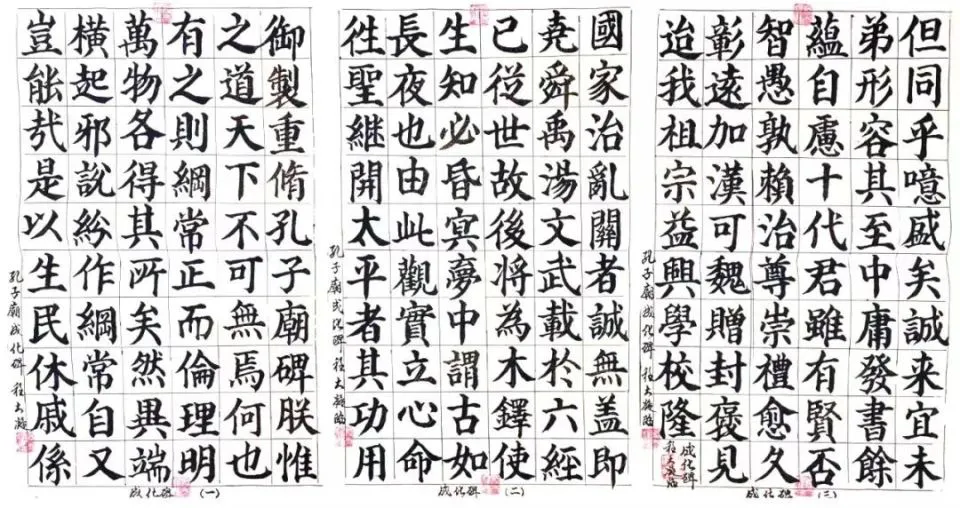 御製重脩孔子廟碑朕惟
之道天下不可無焉何也
有之則綱常正而倫理明
萬物各得其所矣然異端
横起邪說紛作綱常自又
豈能㢤是以生民休戚係
孔子廟成化碑 程大
成化碑 (一)
國家治亂關者誠無盖即
尭舜禹湯文武載於六經
已従世故後將為木鐸使
生知必昏冥夢中謂古如
長夜也由此觀實立心命
徃聖継開太平者其功用
孔子廟成化碑 程大 臨
成化碑 (二)
但同乎噫戚矣誠来宜未
弟形容其至中庸發書餘
蘊自慮十代君雖有賢否
智愚孰賴治尊崇禮愈久
彰遠加漢可魏贈封褒見
迨我祖宗益興學校隆
成化碑
程大 臨
孔子廟成化碑 程大 臨
成化碑 (三)